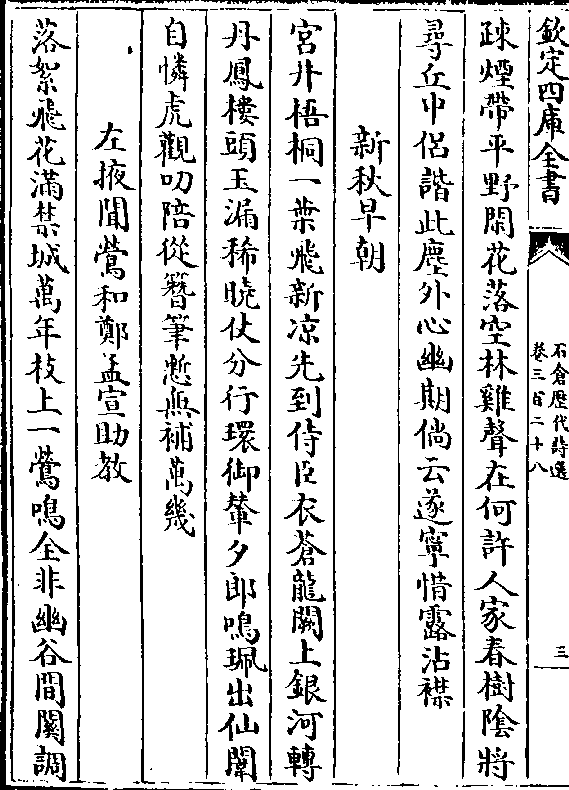 欽定四庫全書
石倉歷代詩選
卷三百二十八
三
疎煙帶平野閑花落空林雞聲在何許人家春樹陰將
尋丘中侶諧此塵外心幽期倘云遂寧惜露沾襟
新秋早朝
宮井梧桐一葉飛新凉先到侍臣衣蒼龍闕上銀河轉
丹鳳樓頭玉漏稀曉仗分行環御輦夕郎鳴珮出仙闈
自憐虎觀叨陪從簪筆慙無補萬幾
左掖聞鶯和鄭孟宣助教
落絮飛花滿禁城萬年枝上一鶯鳴全非幽谷間關調